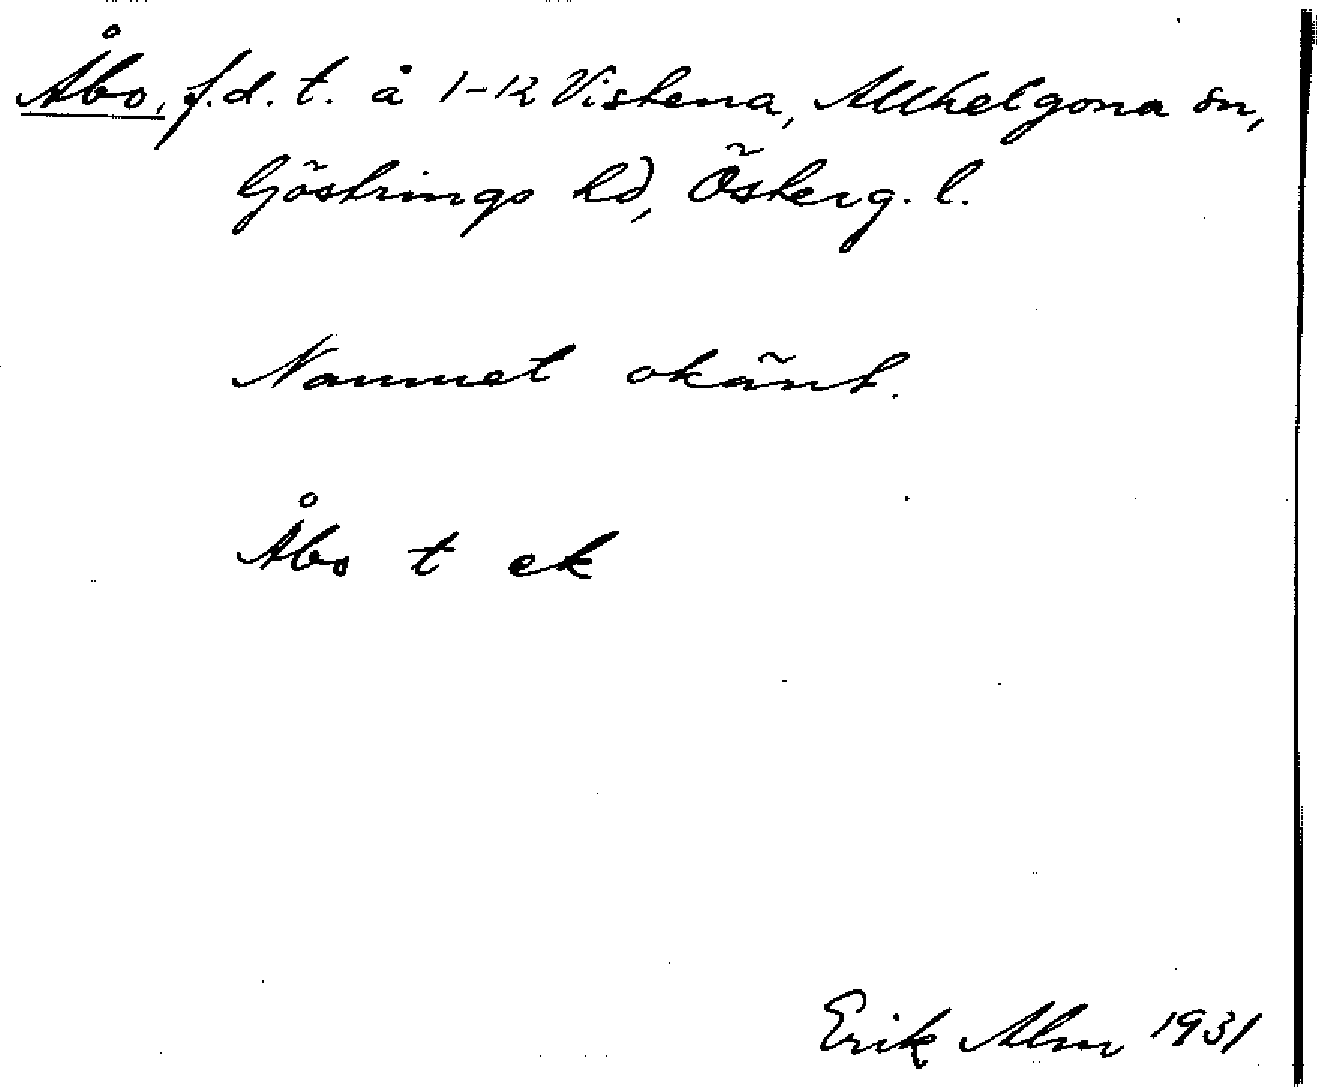 Åbo, f.d. t. å 1-12 Vistena, Allhelgona sn,
Göstrings hd, Österg. l.
Namnet okänt.
Åbo t ek
Erik Alm 1931